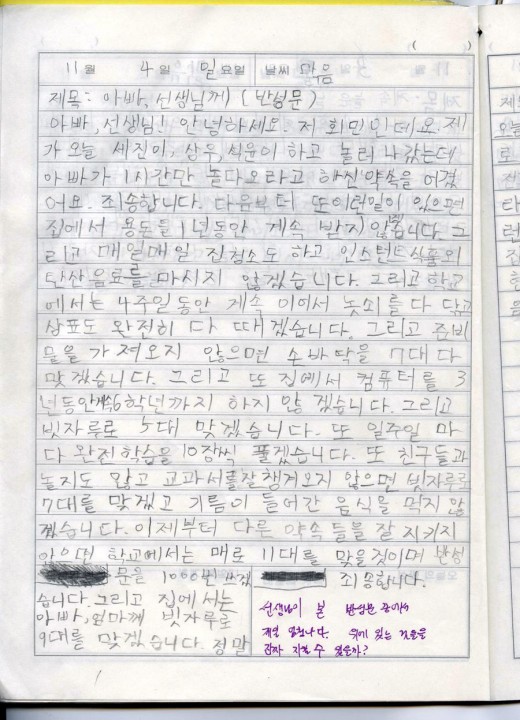 11월 4일 일요일 날씨 맑음
제목: 아빠, 선생님께) (반성문)
아빠, 선생님! 안녕하세요. 저 희민인데요. 제
가 오늘 세진이, 상우, 식운이 하고 놀러 나갔는데
아빠가 1시간만 놀다오라고 하신 약속을 어겼
어요. 죄송합니다. 다음부터 또 이런일이 있으면
집에서 용돈을 1년동안 계속 받지 않겠습니다. 그
리고 매일매일 집청소도 하고 인스턴트식품의
탄산음료를 마시지 않겠습니다. 그리고 학교
에서는 4주일동안 계속 이어서 놋쇠를 다 닦고
상표도 완전히 다 때겠습니다. 그리고 준비
물을 가져오지 않으면 손바닥을 7대 다
맞겠습니다. 그리고 또 집에서 컴퓨터를 3
년동안 계속 6학년까지 하지 않겠습니다. 그리고
빗자루로 5대 맞겠습니다. 또 일주일 마
다 완전학습을 10장씩 풀겠습니다. 또 친구들과
놀지도 않고 교과서를 잘 챙겨오지 않으면 빗자루로
7대를 맞겠고 기름이 들어간 음식을 먹지 않
겠습니다. 이제부터 다른 약속들을 잘 지키지
않으면 학교에서는 매로 11대를 맞을것이며 반성
문을 1000번 쓰겠
습니다. 그리고 집에서는
아빠, 엄마께 빗자루로
9대를 맞겠습니다. 정말
죄송합니다.
선생님이 본 반성문 중에서
제일 멋있구나. 위에 있는 것들을
과자 지킬 수 있을까?